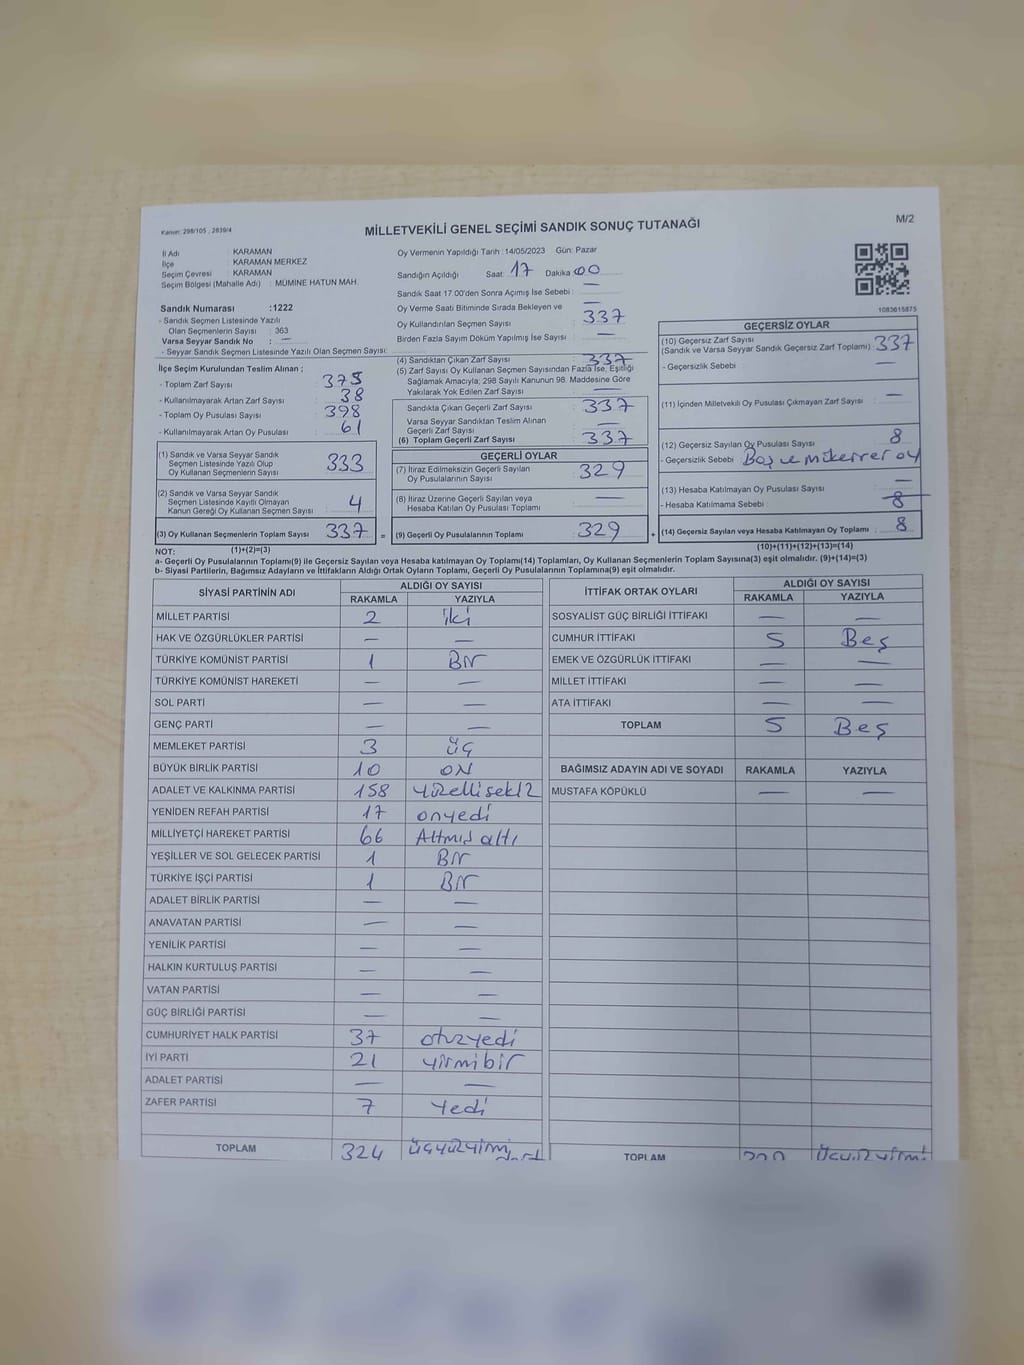 Kanun: 298/105 , 2839/4
MİLLETVEKİLİ GENEL SEÇİMİ SANDIK SONUÇ TUTANAĞI
M/2
İl Adı : KARAMAN
İlçe : KARAMAN MERKEZ
Seçim Çevresi : KARAMAN
Seçim Bölgesi (Mahalle Adı) : MÜMİNE HATUN MAH.
Oy Vermenin Yapıldığı Tarih :14/05/2023 Gün: Pazar
Sandığın Açıldığı Saat: 17 Dakika 00
Sandık Saat 17.00'den Sonra Açılmış İse Sebebi : —
Oy Verme Saati Bitiminde Sırada Bekleyen ve —
Oy Kullandırılan Seçmen Sayısı : 337
Birden Fazla Sayım Döküm Yapılmış İse Sayısı : —
1083615875
Sandık Numarası :1222
- Sandık Seçmen Listesinde Yazılı
Olan Seçmenlerin Sayısı : 363
Varsa Seyyar Sandık No : —
- Seyyar Sandık Seçmen Listesinde Yazılı Olan Seçmen Sayısı:
İlçe Seçim Kurulundan Teslim Alınan ;
- Toplam Zarf Sayısı : 375
- Kullanılmayarak Artan Zarf Sayısı : 38
- Toplam Oy Pusulası Sayısı : 398
- Kullanılmayarak Artan Oy Pusulası : 61
(1) Sandık ve Varsa Seyyar Sandık
Seçmen Listesinde Yazılı Olup
Oy Kullanan Seçmenlerin Sayısı : 333
(2) Sandık ve Varsa Seyyar Sandık
Seçmen Listesinde Kayıtlı Olmayan
Kanun Gereği Oy Kullanan Seçmen Sayısı : 4
(3) Oy Kullanan Seçmenlerin Toplam Sayısı : 337 =
(4) Sandıktan Çıkan Zarf Sayısı : 337
(5) Zarf Sayısı Oy Kullanan Seçmen Sayısından Fazla İse, Eşitliği
Sağlamak Amacıyla; 298 Sayılı Kanunun 98. Maddesine Göre
Yakılarak Yok Edilen Zarf Sayısı : —
Sandıkta Çıkan Geçerli Zarf Sayısı : 337
Varsa Seyyar Sandıktan Teslim Alınan
Geçerli Zarf Sayısı : —
(6) Toplam Geçerli Zarf Sayısı : 337
GEÇERLİ OYLAR
(7) İtiraz Edilmeksizin Geçerli Sayılan
Oy Pusulalarının Sayısı : 329
(8) İtiraz Üzerine Geçerli Sayılan veya
Hesaba Katılan Oy Pusulası Toplamı : —
(9) Geçerli Oy Pusulalarının Toplamı : 329 +
GEÇERSİZ OYLAR
(10) Geçersiz Zarf Sayısı
(Sandık ve Varsa Seyyar Sandık Geçersiz Zarf Toplamı) : 337
- Geçersizlik Sebebi : —
(11) İçinden Milletvekili Oy Pusulası Çıkmayan Zarf Sayısı : —
(12) Geçersiz Sayılan Oy Pusulası Sayısı : 8
- Geçersizlik Sebebi : Boş ve mükerrer oy
(13) Hesaba Katılmayan Oy Pusulası Sayısı : —
- Hesaba Katılmama Sebebi : 8
(14) Geçersiz Sayılan veya Hesaba Katılmayan Oy Toplamı : 8
NOT: (1)+(2)=(3) (10)+(11)+(12)+(13)=(14)
a- Geçerli Oy Pusulalarının Toplamı(9) ile Geçersiz Sayılan veya Hesaba katılmayan Oy Toplamı(14) Toplamları, Oy Kullanan Seçmenlerin Toplam Sayısına(3) eşit olmalıdır. (9)+(14)=(3)
b- Siyasi Partilerin, Bağımsız Adayların ve İttifakların Aldığı Ortak Oyların Toplamı, Geçerli Oy Pusulalarının Toplamına(9) eşit olmalıdır.
SİYASİ PARTİNİN ADI ALDIĞI OY SAYISI
RAKAMLA YAZIYLA
MİLLET PARTİSİ 2 iki
HAK VE ÖZGÜRLÜKLER PARTİSİ — —
TÜRKİYE KOMÜNİST PARTİSİ 1 Bir
TÜRKİYE KOMÜNİST HAREKETİ — —
SOL PARTİ — —
GENÇ PARTİ — —
MEMLEKET PARTİSİ 3 üç
BÜYÜK BİRLİK PARTİSİ 10 ON
ADALET VE KALKINMA PARTİSİ 158 yüzellisekiz
YENİDEN REFAH PARTİSİ 17 onyedi
MİLLİYETÇİ HAREKET PARTİSİ 66 Altmış altı
YEŞİLLER VE SOL GELECEK PARTİSİ 1 Bir
TÜRKİYE İŞÇİ PARTİSİ 1 Bir
ADALET BİRLİK PARTİSİ — —
ANAVATAN PARTİSİ — —
YENİLİK PARTİSİ — —
HALKIN KURTULUŞ PARTİSİ — —
VATAN PARTİSİ — —
GÜÇ BİRLİĞİ PARTİSİ — —
CUMHURİYET HALK PARTİSİ 37 otuzyedi
İYİ PARTİ 21 yirmibir
ADALET PARTİSİ — —
ZAFER PARTİSİ 7 Yedi
TOPLAM 324 üçyüzyirmi
İTTİFAK ORTAK OYLARI ALDIĞI OY SAYISI
RAKAMLA YAZIYLA
SOSYALİST GÜÇ BİRLİĞİ İTTİFAKI — —
CUMHUR İTTİFAKI 5 Beş
EMEK VE ÖZGÜRLÜK İTTİFAKI — —
MİLLET İTTİFAKI — —
ATA İTTİFAKI — —
TOPLAM 5 Beş
BAĞIMSIZ ADAYIN ADI VE SOYADI RAKAMLA YAZIYLA
MUSTAFA KÖPÜKLÜ — —
TOPLAM